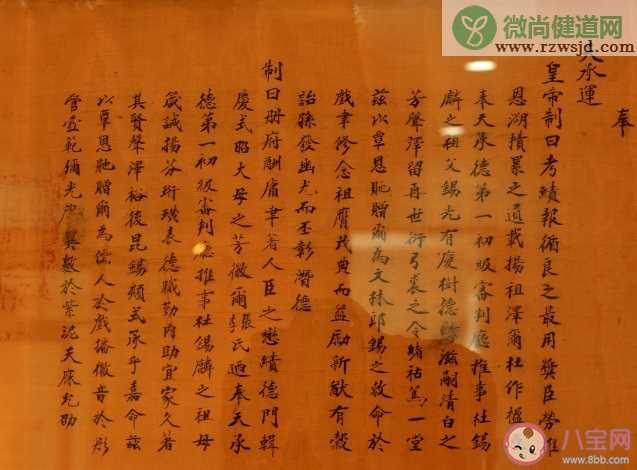 微尚健道网
www.rzwsjd.com
奉
天承運
皇帝制曰考績報循良之最用獎臣勞推
恩溯積累之遺載揚祖澤爾杜作楹
奉天承德第一初級審判廳推事杜錫
麟之祖父錫光有慶樹德務滋嗣清白之
芳聲澤留再世衍弓裘之令緒祜篤一堂
茲以覃恩貤贈爾為文林郎錫之敕命於
戲聿修念祖膺茂典而益勵新猷有穀
詒孫發幽光而丕彰潛德
制曰冊府酬庸聿著人臣之懋績德門輯
慶式昭大母之芳徽爾張李氏迺奉天承
德第一初級審判廳推事杜錫麟之祖母
箴誡揚芬珩璜表德職勤內助宜家久著
其賢聲澤裕後昆錫類式承乎嘉命茲
以覃恩貤贈爾為孺人於戲播徽音於彤
管壼範彌光異數於紫泥天庥允劭
八宝网
www.8bb.com